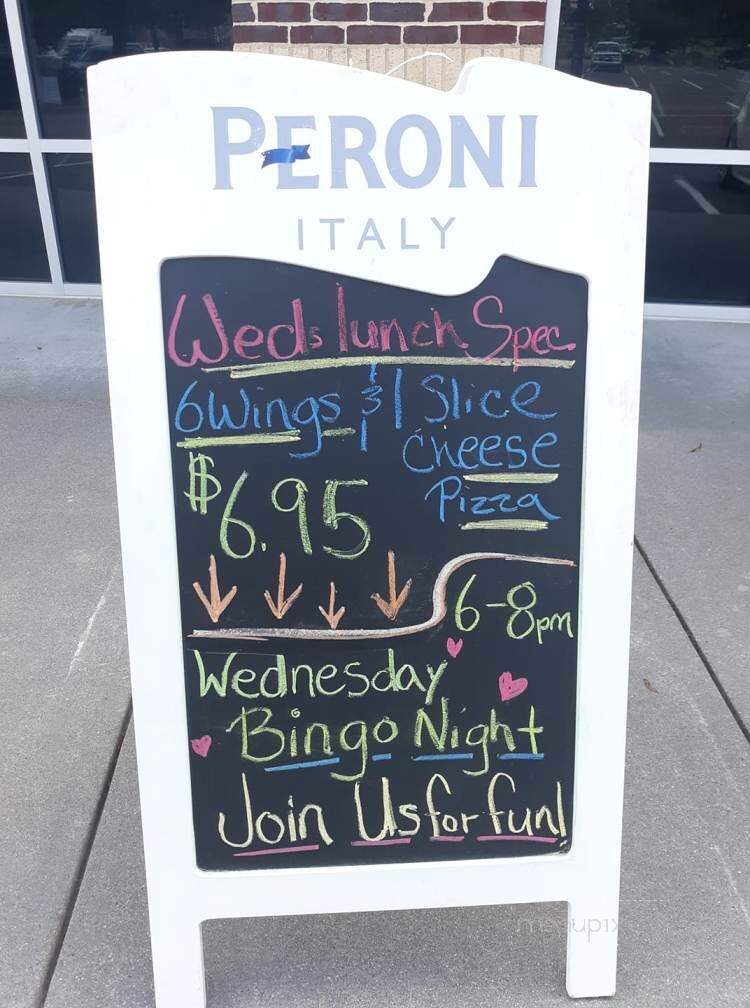 PERONI
ITALY
Weds lunch Spec.
6 Wings & 1 Slice
Cheese
Pizza
$6.95
6-8pm
Wednesday
Bingo Night
Join Us for fun!